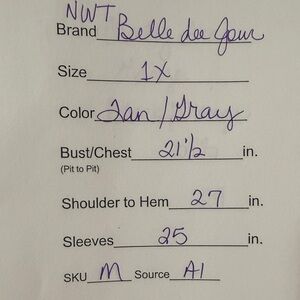 NWT
Brand Belle dee Jour
Size 1X
Color Tan/Gray
Bust/Chest 21 1/2 in.
(Pit to Pit)
Shoulder to Hem 27 in.
Sleeves 25 in.
SKU M Source A1